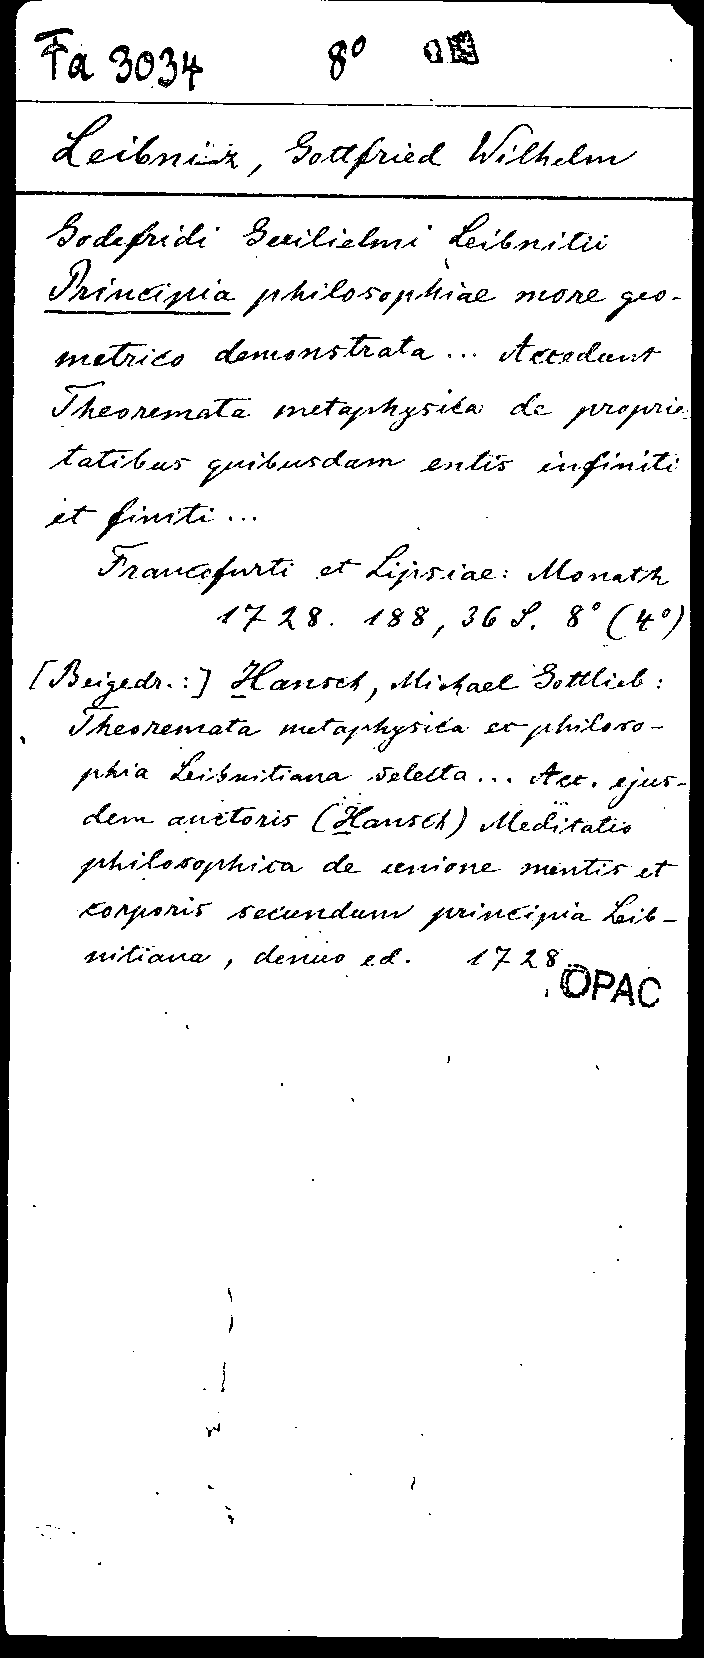 Fa 3034 8°
Leibniz, Gottfried Wilhelm
Godefridi Guilielmi Leibnitii
Principia philosophiae more geo-
metrico demonstrata ... Accedunt
Theoremata metaphysica de proprie-
tatibus quibusdam entis infiniti
et finiti ...
Francofurti et Lipsiae: Monath
1728. 188, 36 S. 8° (4°)
[Beigedr.:] Hansch, Michael Gottlieb:
Theoremata metaphysica ex philoso-
phia Leibnitiana selecta ... Acc. ejus-
dem auctoris (Hansch) Meditatio
philosophica de unione mentis et
corporis secundum principia Leib-
nitiana, denuo ed. 1728.
OPAC